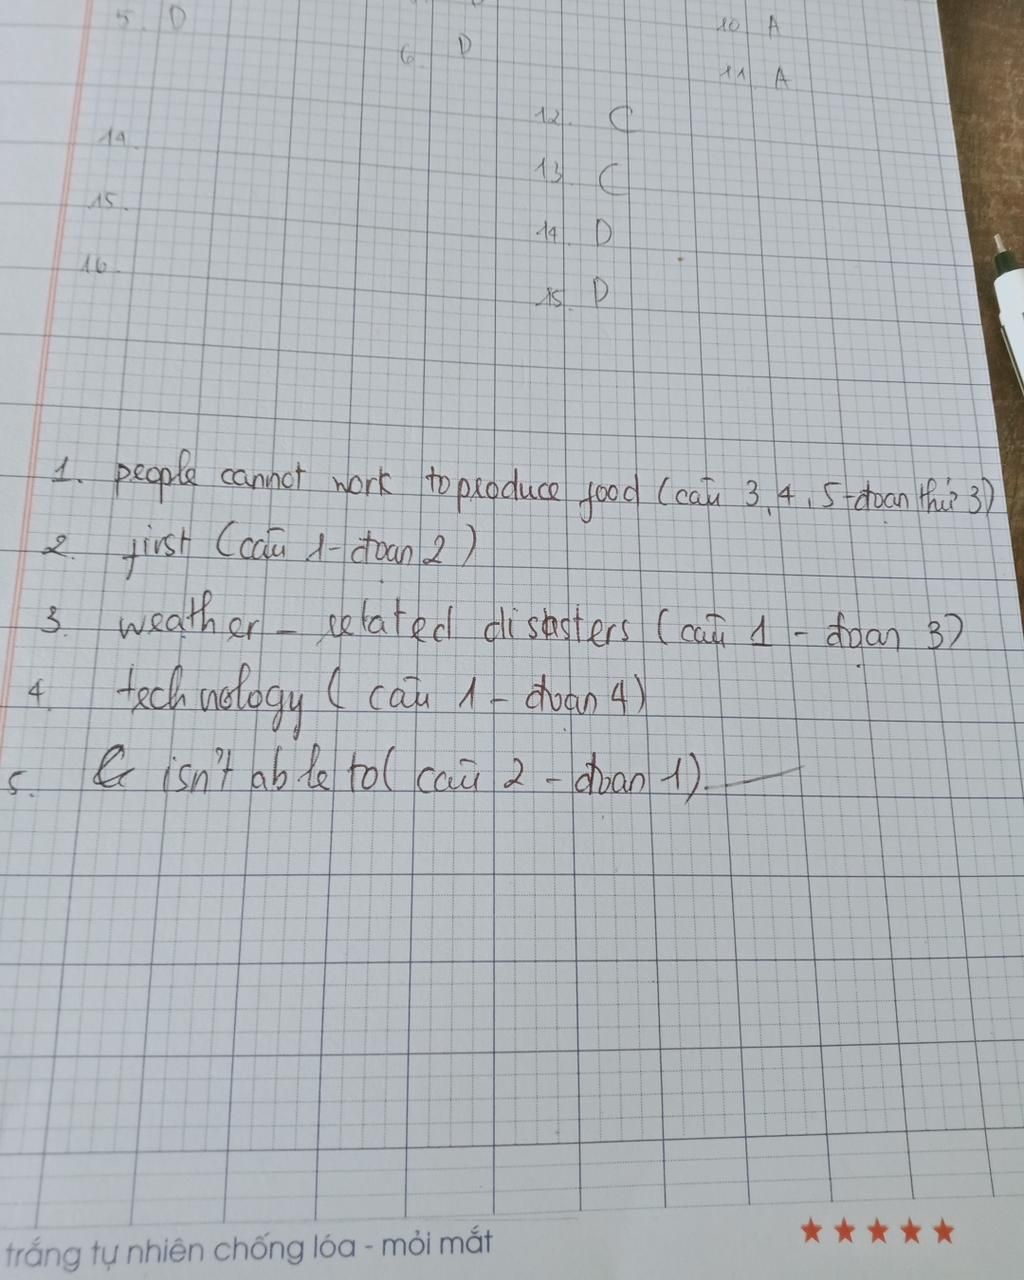 5. D
10 A
6. D
11 A
12. C
14.
13 C
15.
14. D
16.
15. D
1. people cannot work to produce food (câu 3, 4, 5 - đoạn thứ 3)
2. first (câu 1 - đoạn 2)
3. weather - related disasters (câu 1 - đoạn 3)
4. technology (câu 1 - đoạn 4)
5. isn't able to (câu 2 - đoạn 1)
trắng tự nhiên chống lóa - mỏi mắt